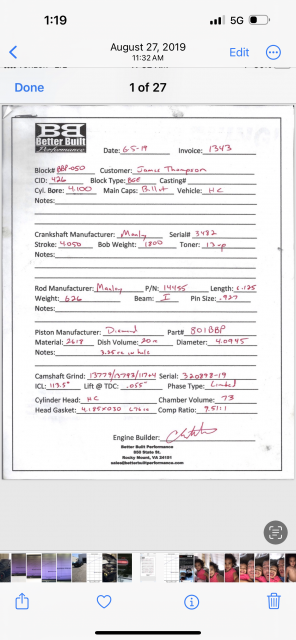 1:19 5G
August 27, 2019
11:32 AM
Edit
Done 1 of 27
BB
Better Built
Performance
Date: 6-5-19 Invoice: 1343
Block# BBP-050 Customer: James Thompson
CID: 426 Block Type: BGE Casting#
Cyl. Bore: 4.100 Main Caps: Billet Vehicle: HC
Notes:
Crankshaft Manufacturer: Manley Serial# 3482
Stroke: 4.050 Bob Weight: 1800 Toner:
Notes:
Rod Manufacturer: Manley P/N: 14455 Length: 6.125
Weight: 626 Beam: I Pin Size: .927
Piston Manufacturer: Diamond Part# 801BBP
Material: 2618 Dish Volume: 20 Diameter: 4.0945
Notes: 3.25 in hole
Camshaft Grind: 13779/13792/ Serial: 320898-19
ICL: 113.5° Lift @ TDC: .055" Phase Type: Limited
Cylinder Head: HC Chamber Volume: 73
Head Gasket: 4.185x030 Comp Ratio: 9.5:1
Engine Builder:
Better Built Performance
650 State St.
Rocky Mount, VA 24151
sales@betterbuiltperformance.com